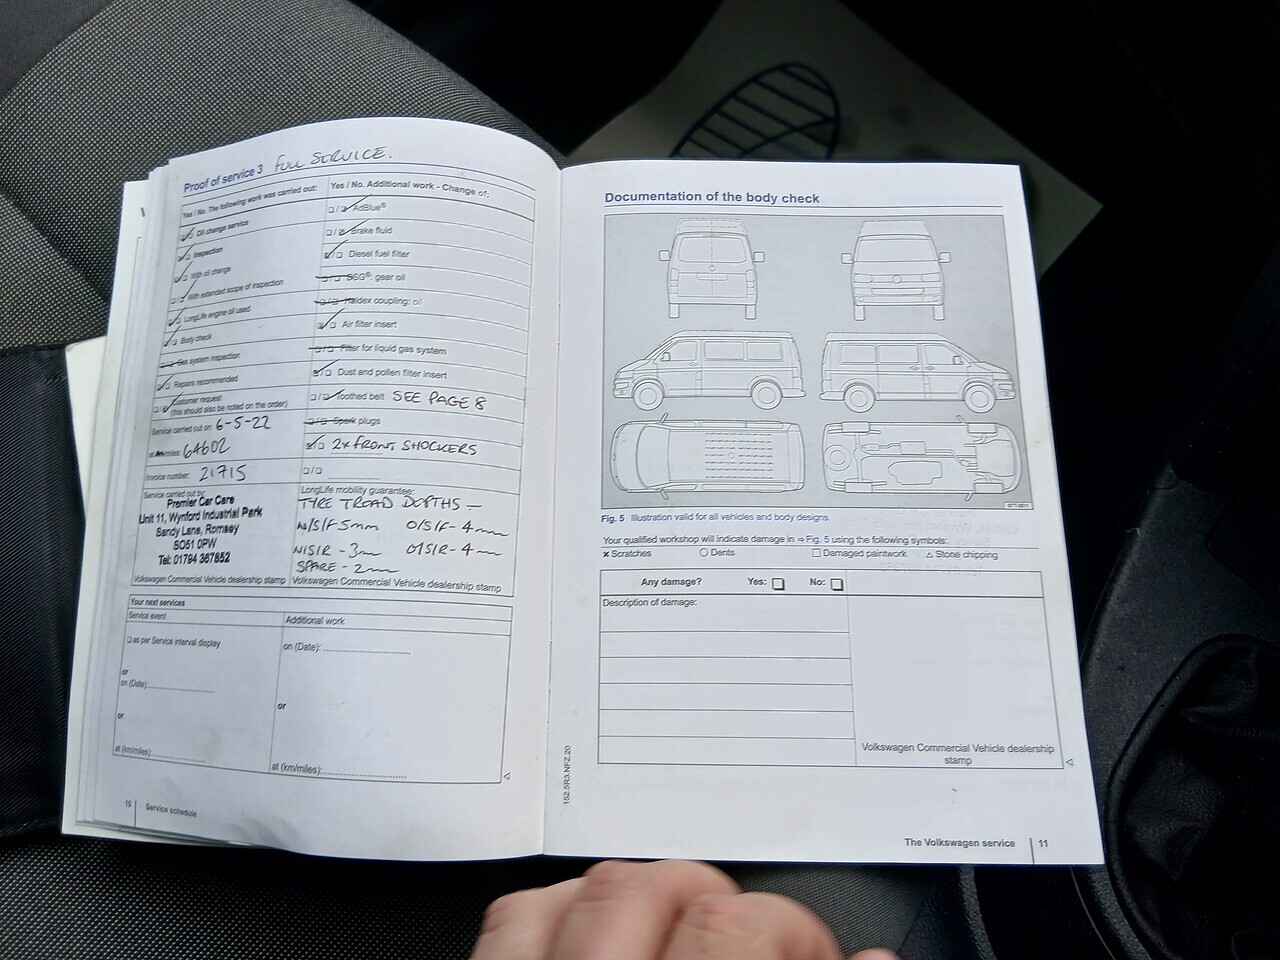 Proof of service 3 FULL SERVICE.
Yes / No. The following work was carried out:
Oil change service
Inspection
With oil change
With extended scope of inspection
LongLife engine oil used
Body check
Gas system inspection
Repairs recommended
Customer request
(this should also be noted on the order)
Service carried out on: 6-5-22
at km/miles: 64602
Invoice number: 21715
Service carried out by:
Premier Car Care
Unit 11, Wynford Industrial Park
Sandy Lane, Romsey
SO51 0PW
Tel: 01794 367852
Volkswagen Commercial Vehicle dealership stamp
Yes / No. Additional work - Change of:
AdBlue®
Brake fluid
Diesel fuel filter
DSG®: gear oil
Haldex coupling: oil
Air filter insert
Filter for liquid gas system
Dust and pollen filter insert
Toothed belt SEE PAGE 8
Spark plugs
2x FRONT SHOCKERS
LongLife mobility guarantee:
TYRE TREAD DEPTHS -
N/S/F 5mm O/S/F- 4mm
N/S/R - 3mm O/S/R- 4mm
SPARE - 2mm
Volkswagen Commercial Vehicle dealership stamp
Your next services
Service event
as per Service interval display
or
on (Date):
or
at (km/miles):
Additional work
on (Date):
or
at (km/miles):
10 Service schedule
Documentation of the body check
Fig. 5 Illustration valid for all vehicles and body designs.
Your qualified workshop will indicate damage in ⇒ Fig. 5 using the following symbols:
× Scratches ○ Dents □ Damaged paintwork △ Stone chipping
Any damage? Yes: No:
Description of damage:
Volkswagen Commercial Vehicle dealership
stamp
152.5R3.NFZ.20
The Volkswagen service 11